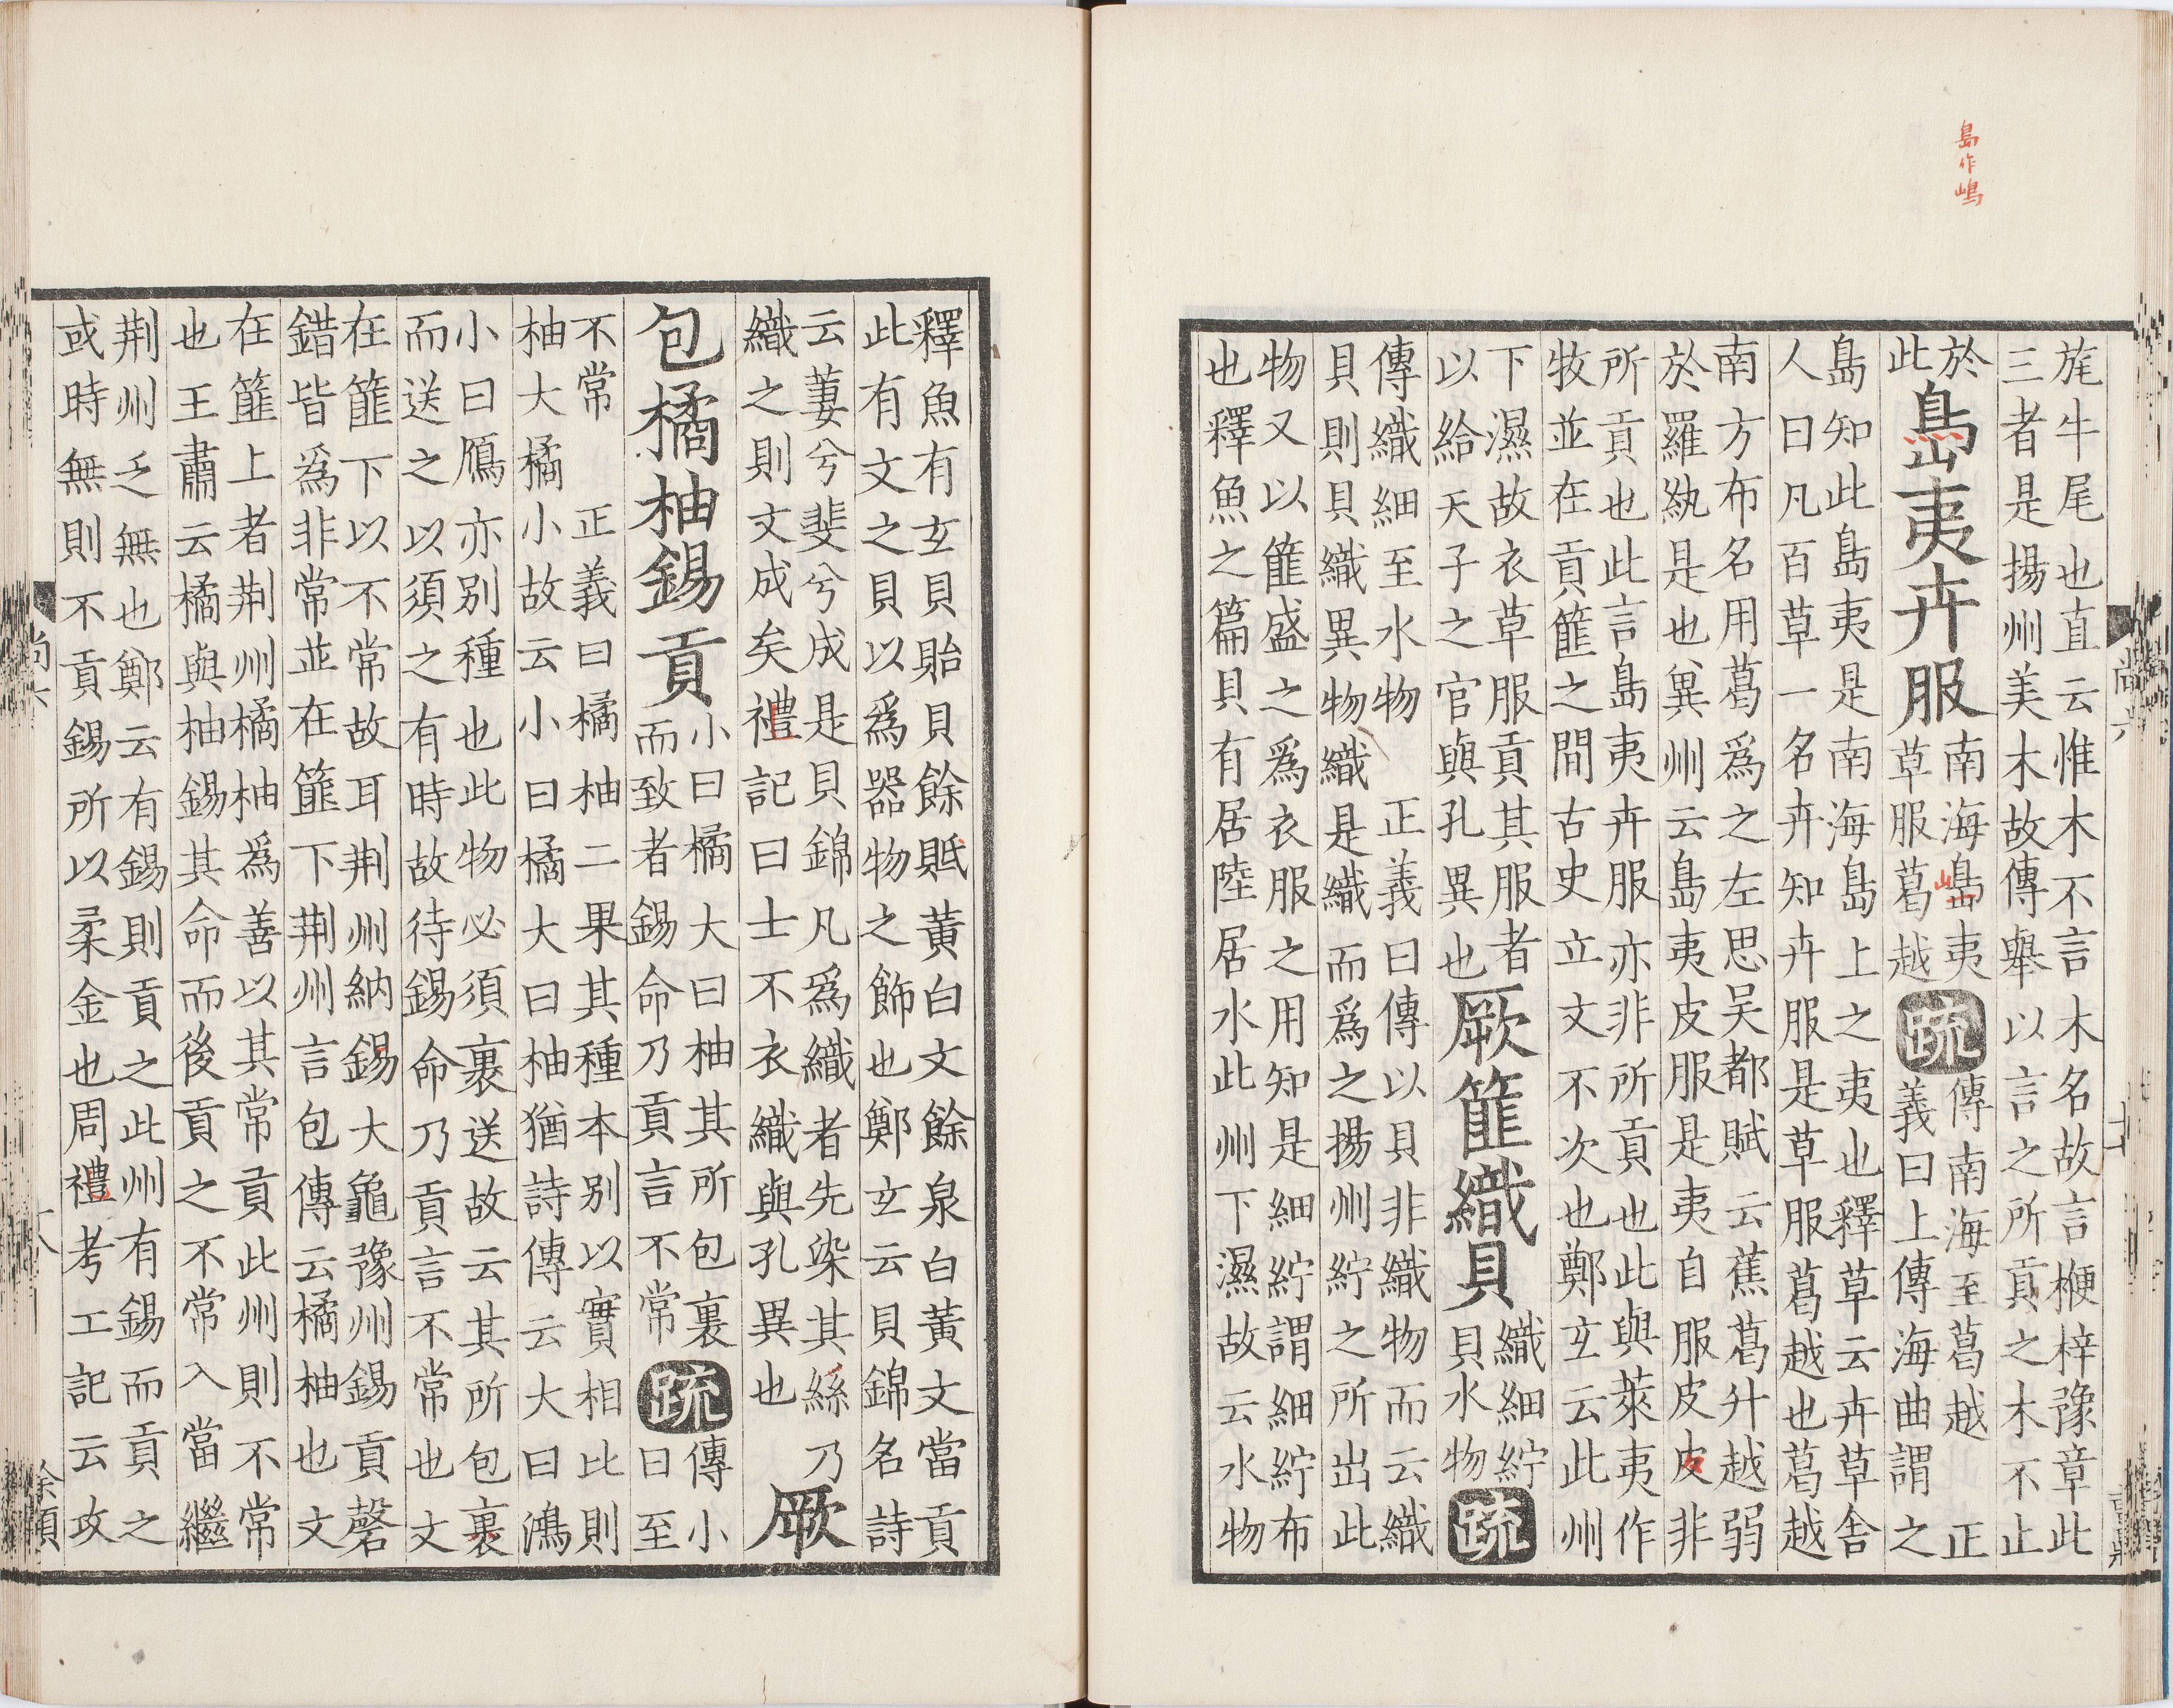 島作嶋
旄牛尾也直云惟木不言木名故言楩梓豫章此
三者是揚州美木故傳舉以言之所貢之木不止
於
此
島夷卉服
南海島夷
草服葛越
疏
傳南海至葛越 正
義曰上傳海曲謂之
島知此島夷是南海島上之夷也釋草云卉草舍
人曰凡百草一名卉知卉服是草服葛越也葛越
南方布名用葛爲之左思吳都賦云蕉葛升越弱
於羅紈是也兾州云島夷皮服是夷自服皮皮非
所貢也此言島夷卉服亦非所貢也此與萊夷作
牧並在貢篚之間古史立文不次也鄭玄云此州
下濕故衣草服貢其服者
以給天子之官與孔異也
厥篚織貝
織細紵
貝水物
疏
傳織細至水物 正義曰傳以貝非織物而云織
貝則貝織異物織是織而爲之揚州紵之所出此
物又以篚盛之爲衣服之用知是細紵謂細紵布
也釋魚之篇貝有居陸居水此州下濕故云水物
尚六
釋魚有玄貝貽貝餘貾黃白文餘泉白黃文當貢
此有文之貝以爲器物之飾也鄭玄云貝錦名詩
云萋兮斐兮成是貝錦凡爲織者先染其絲乃
織之則文成矣禮記曰士不衣織與孔異也
厥
包橘柚錫貢
小曰橘大曰柚其所包裹
而致者錫命乃貢言不常
疏
傳小
曰至
不常 正義曰橘柚二果其種本別以實相比則
柚大橘小故云小曰橘大曰柚猶詩傳云大曰鴻
小曰鴈亦別種也此物必須裹送故云其所包裹
而送之以須之有時故待錫命乃貢言不常也文
在篚下以不常故耳荆州納錫大龜豫州錫貢磬
錯皆爲非常並在篚下荆州言包傳云橘柚也文
在篚上者荆州橘柚爲善以其常貢此州則不常
也王肅云橘與柚錫其命而後貢之不常入當繼
荆州乏無也鄭云有錫則貢之此州有錫而貢之
或時無則不貢錫所以柔金也周禮考工記云攻